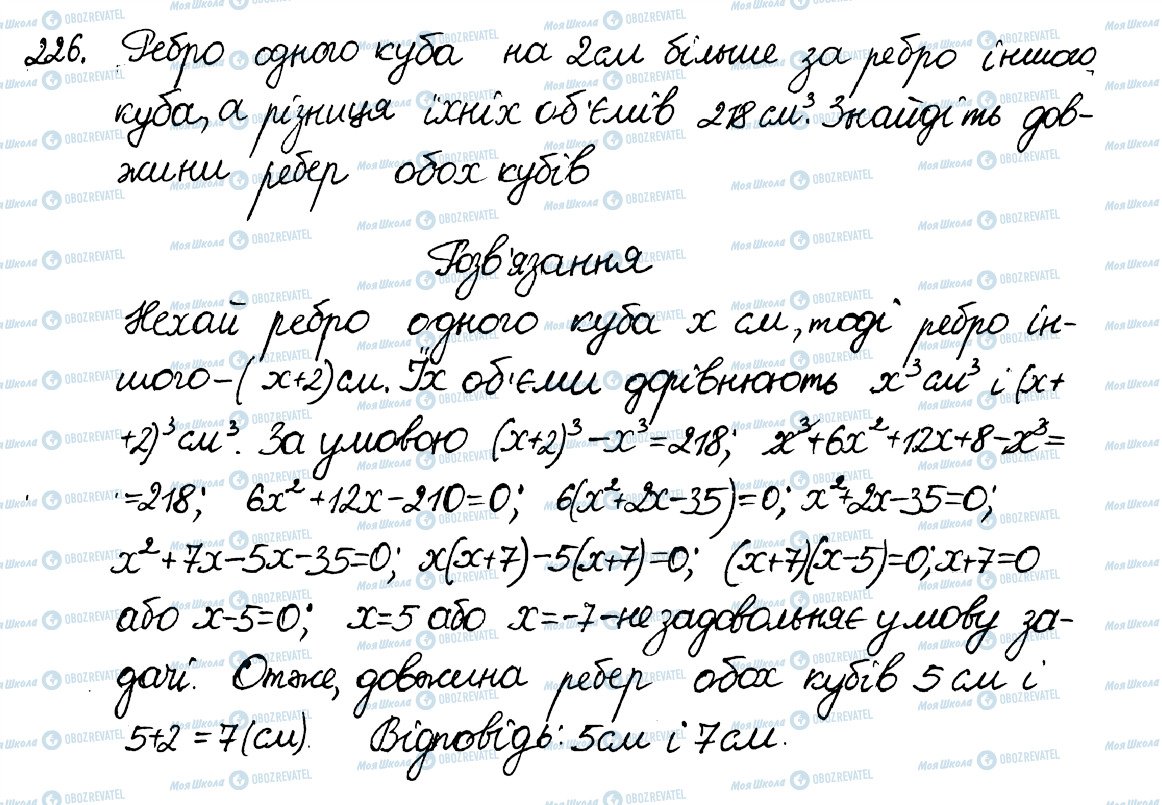 226. Ребро одного куба на 2 см більше за ребро іншого
куба, а різниця їхніх об'ємів 218 см³. Знайдіть дов-
жини ребер обох кубів
Розв'язання
Нехай ребро одного куба x см, тоді ребро ін-
шого – (x+2) см. Їх об'єми дорівнюють x³ см³ і (x+
+2)³ см³. За умовою (x+2)³ – x³ = 218; x³+6x²+12x+8–x³=
=218; 6x²+12x–210=0; 6(x²+2x–35)=0; x²+2x–35=0;
x²+7x–5x–35=0; x(x+7)–5(x+7)=0; (x+7)(x–5)=0; x+7=0
або x–5=0; x=5 або x=–7 – не задовольняє умову за-
дачі. Отже, довжина ребер обох кубів 5 см і
5+2=7 (см). Відповідь: 5 см і 7 см.
МояШкола OBOZREVATEL